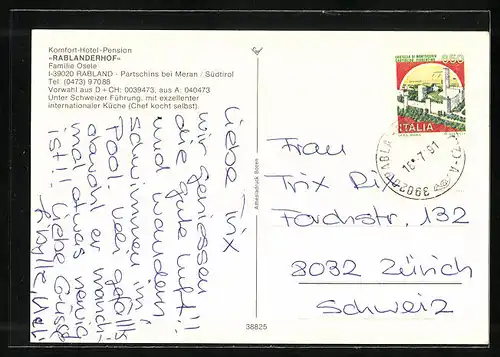 Komfort-Hotel-Pension
«RABLANDERHOF»
Familie Osele
I-39020 RABLAND - Partschins bei Meran / Südtirol
Tel (0473) 97088
Vorwahl aus D + CH: 0039473, aus A: 040473
Unter Schweizer Führung, mit exzellenter
internationaler Küche (Chef kocht selbst).
Liebe Trix
Wir geniessen
die gute Luft!!
und wandern
schwimmen im
Pool. Ueli gefällts
obwohl er manch-
mal etwas ruhig
ist!! Liebe Grüsse
Ueli
Amonisdruck Bozen
38825
CASTELLO DI MONTECCHIO
CASTIGLION FIORENTINO
650
ITALIA
39020 RABLA
16-7-91
Frau
Trix
Forchstr. 132
8032 Zürich
Schweiz